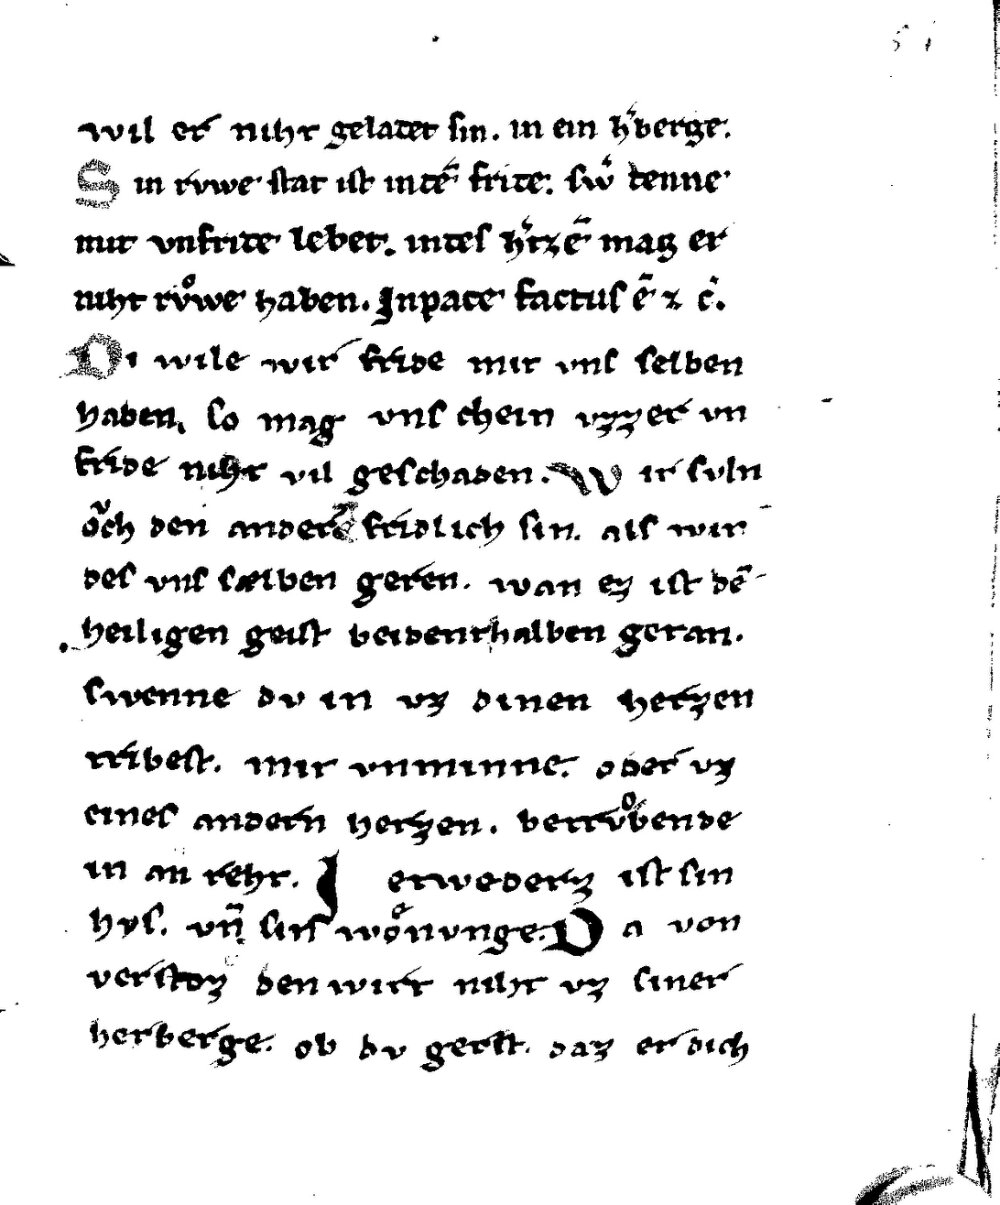 51
wil er niht geladet sin. in ein h̾berge.
Sin rvwe stat ist in dē fride. sw̾ denne
mit vnfride lebet. in des h̾rzē mag er
niht rvͦwe haben. In pace factus ē ⁊ c̾.
Di wile wir fride mit vns selben
haben. so mag vns chein vzzer vn
fride niht vil geschaden. Wir svln
oͮch den anderē fridlich sin. als wir
des vns sælben geren. wan ez ist dē
heiligen geist beidenthalben getan.
swenne dv in vz dinen herzen
tribest. mit vnminne. oder vz
eines andern herzen. betrvͦbende
in an reht. Ierwederz ist sin
hvs. vn̄ sins woͤnvnge. Da von
verstoz den wirt niht vz siner
herberge. ob dv gerst. daz er dich